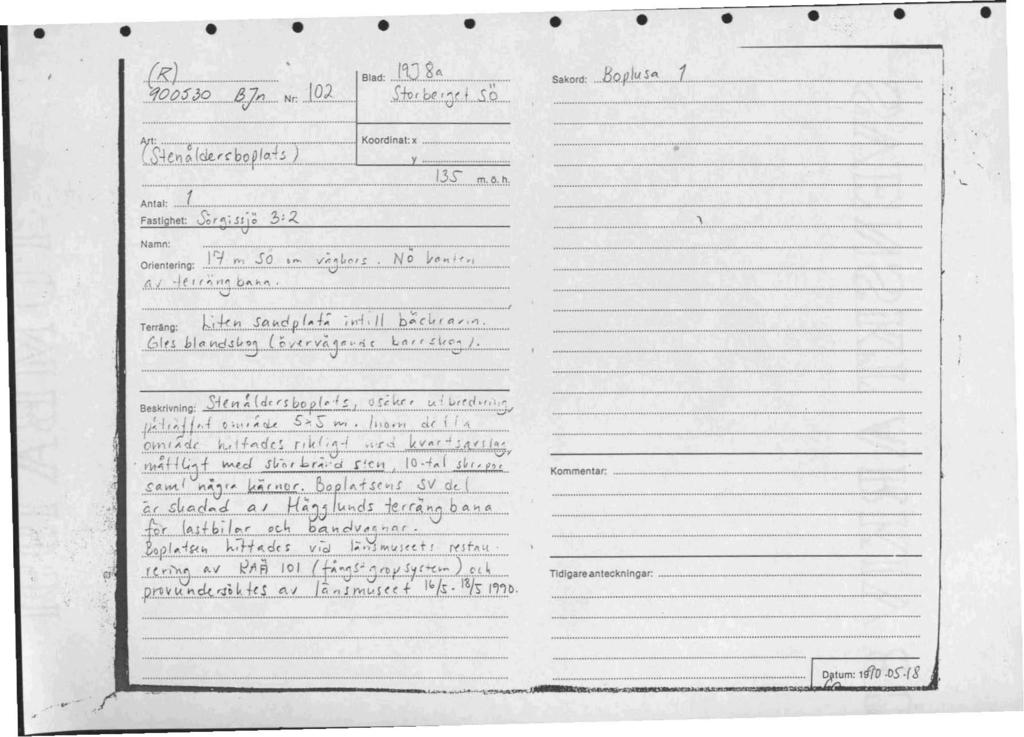 (R)
900530 BJn Nr: 102
Blad: 19J 8a
Storberget SÖ
Art:
(Stenåldersboplats)
Koordinat: x
y
135 m. ö. h.
Antal: 1
Fastighet: Sörgissjö 3:2
Namn:
Orientering: 17 m SO om vägkors. NÖ kanten
av terrängbana.
Terräng: Liten sandplatå intill bäckravin.
Gles blandskog (övervägande barrskog).
Beskrivning: Stenåldersboplats, osäker utbredning,
påträffat område 5x5 m. Inom detta
område hittades rikligt med kvartsavslag,
måttligt med skörbränd sten, 10-tal skrapor
samt några kärnor. Boplatsens SV del
är skadad av Hägglunds terrängbana
för lastbilar och bandvagnar.
Boplatsen hittades vid länsmuseets restau-
rering av RAÄ 101 (fångstgropsystem) och
provundersöktes av länsmuseet 16/5-18/5 1990.
Sakord: Boplusa 1
Kommentar:
Tidigare anteckningar:
Datum: 1990-05-18